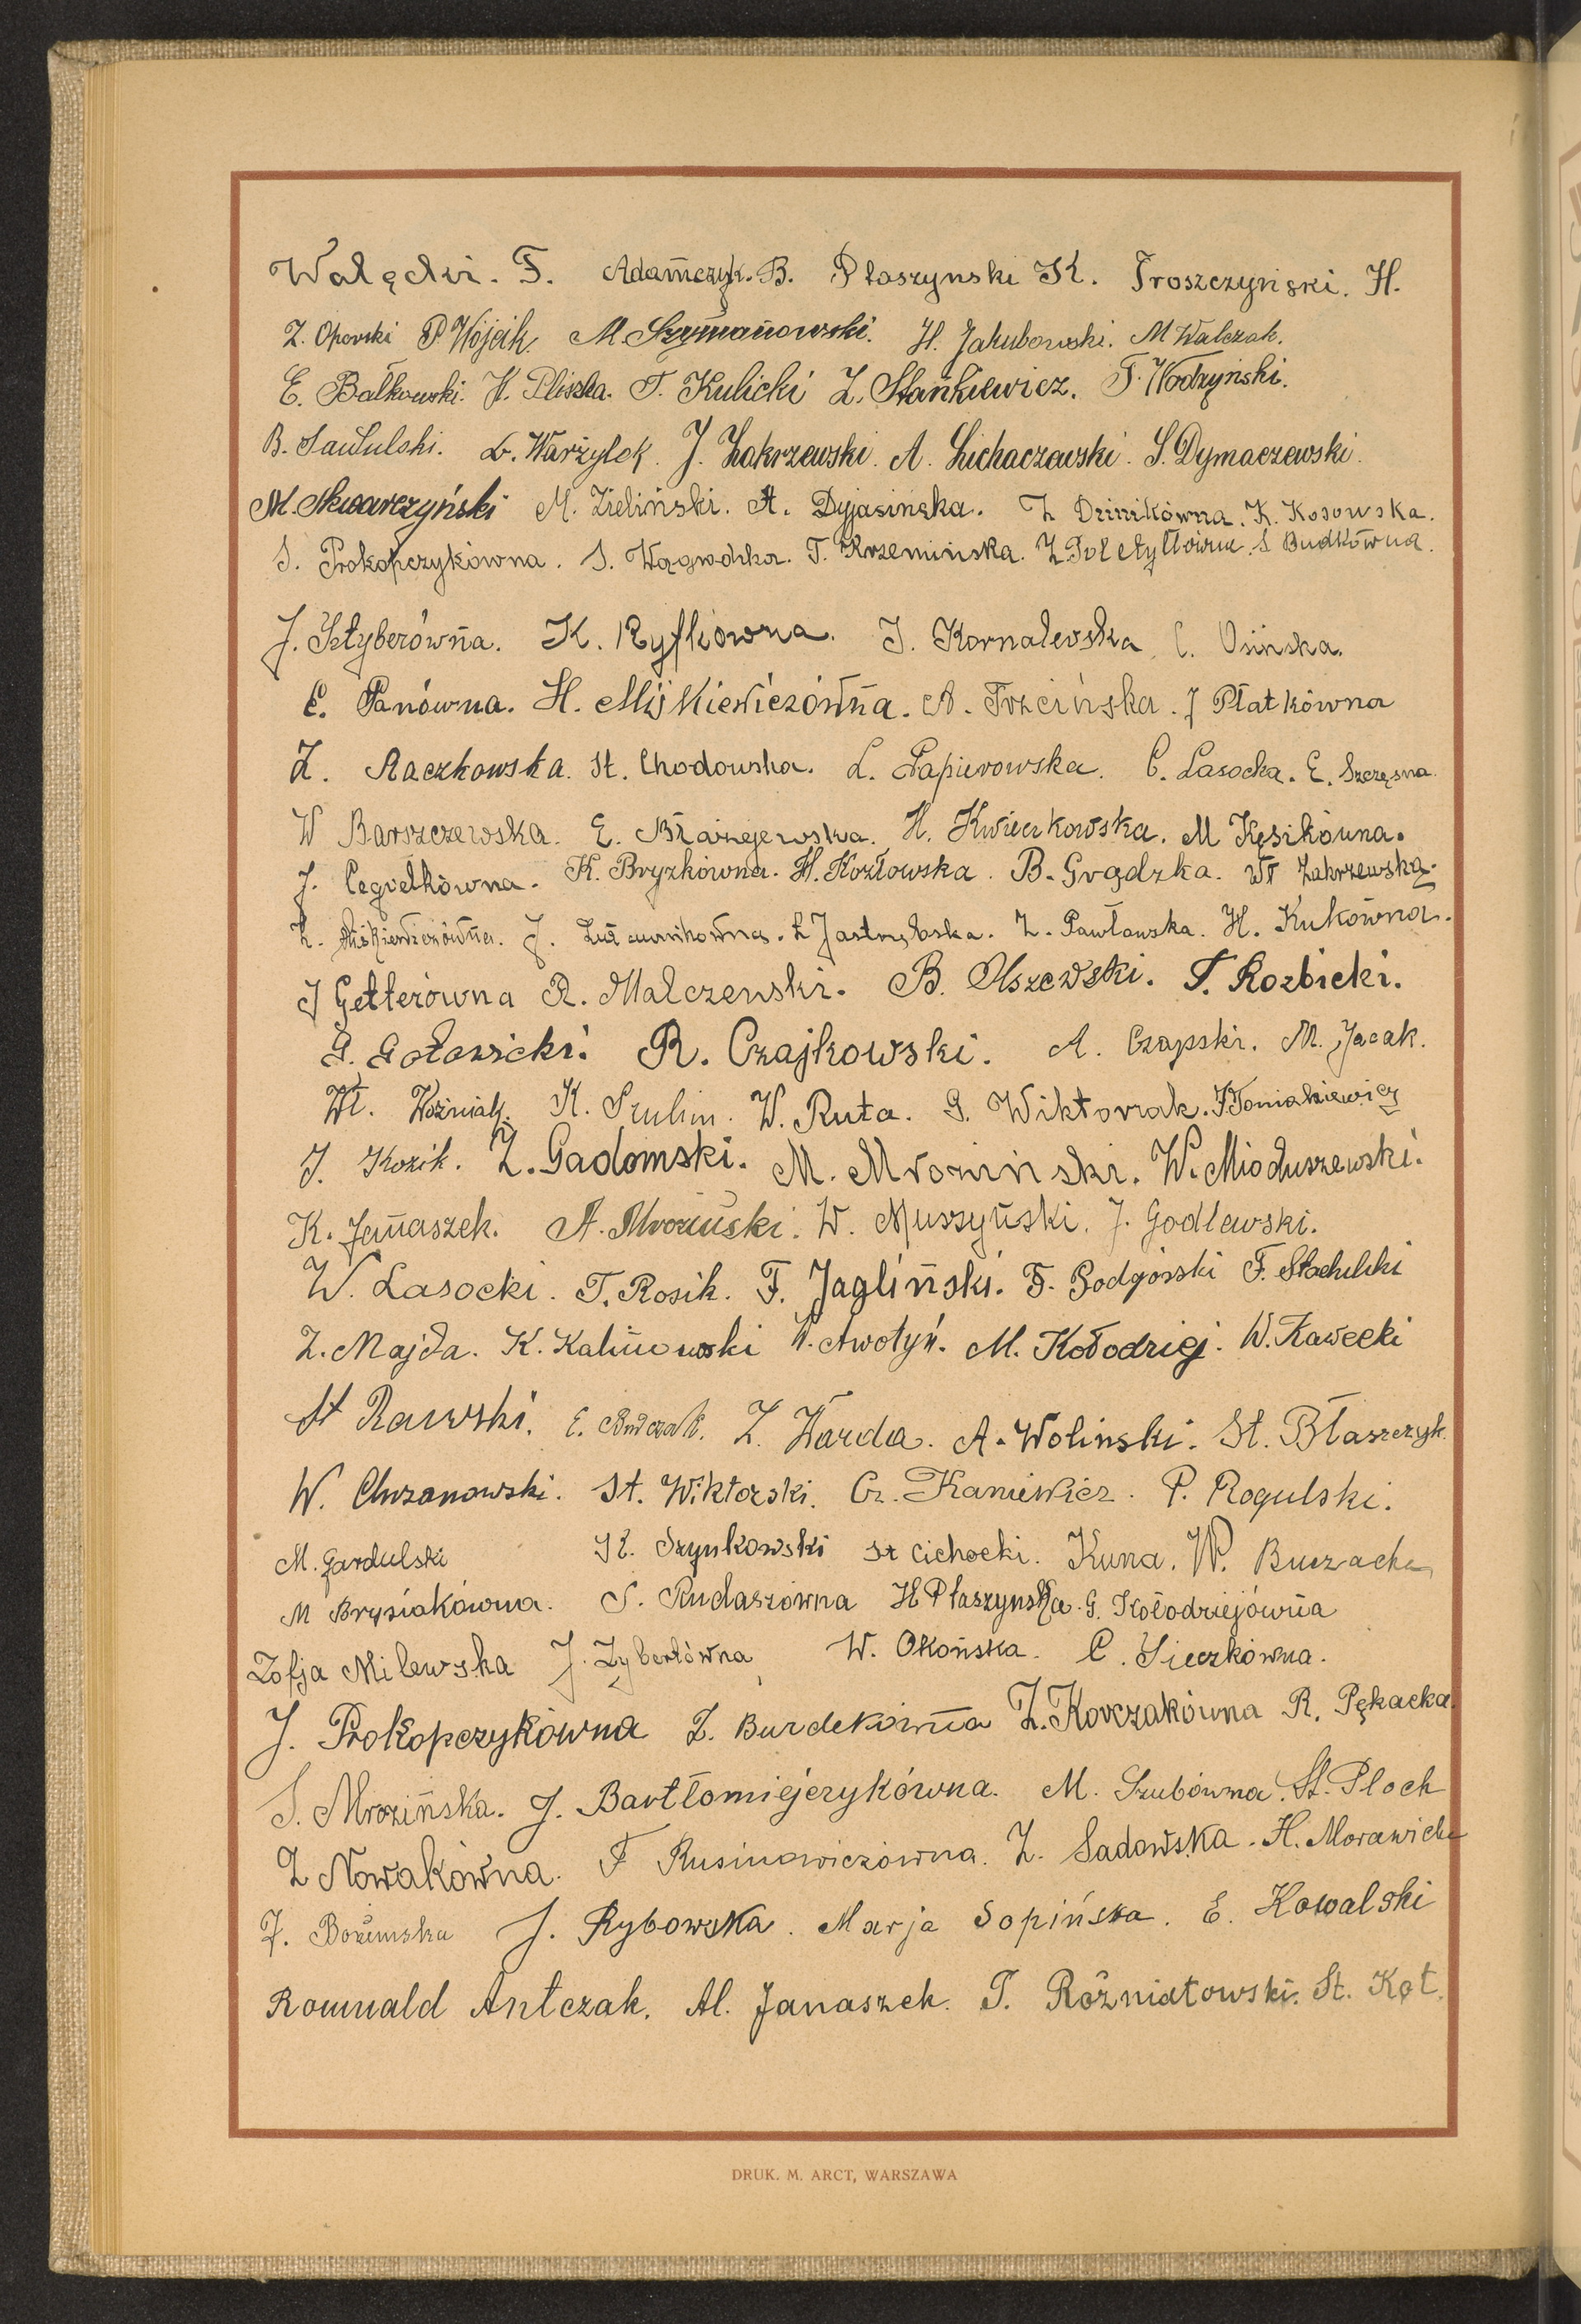 Wałęcki. F. Adamczyk. B. Płaszynski K. Troszczyński. H.
Z. Oporski P Wójcik. M. Szymanowski. H. Jakubowski. M Walczak.
E. Bałkowski. K. Pliszka. T. Kulicki Z. Stankiewicz. F. Wodzyński.
B. L. Warżylok. J. Zakrzewski. A. Lichaczewski. S. Dymaczewski.
M. Skwarczyński M. Zieliński. A. Dyjasinska. Z K. Kosowska.
S. Prokopczykówna. S. T. Krzeminska. Z. S Budkówna.
J. Sztyberówna. K. Ryfkówna. J. Kornalewska C. Osińska.
C. Panówna. H. Miśkiewiczówna. A. Trzcińska. J Płatkówna
Z. Raczkowska. St. Chodowska. L. Papierowska. C. Lasocka. E. Szczęsna.
W Barszczewska. E. Błażejewska. H. Kwieckowska. M Kęsikówna.
J. Cegiełkówna. K. Bryzkówna. H. Kozłowska. B. Grądzka. Wł Zakrzewska.
Z. Miśkiewiczówna. J. Z Jastrzębska. Z. Pawłowska. H. Kukówna.
J Getterówna R. Malczewski. B. Olszewski. T. Rozbicki.
G. Gołowicki. R. Czajkowski. A. Czapski. M. Jacak.
Wł. Woźniak. K. Szulim. W. Ruta. G. Wiktorak. J Toniakiewicz
J. Kozik. Z. Gadomski. M. Mrozinski. W. Mioduszewski.
K. Janaszek. A. Mroziński. W. Muszyński. J. Godlewski.
W. Lasocki. T. Rosik. F. Jagliński. F. Podgórski F. Stachulski
Z. Majda. K. Kalinowski A. Awotyń. M. Kołodziej. W. Kawecki
St Rawski. E. Z. Warda. A. Wolinski. St. Błaszczyk.
W. Chrzanowski. St. Wiktorski. Cz. Kaniewicz. P. Rogulski.
M. Gardulski K. Szynkowski St Cichocki. Kuna. W. Buczacha
M Brysiakówna. S. Rudaszówna H Płaszynska. G. Kołodziejówna
Zofja Milewska J. Zybertówna W. Okońska. C. Sieczkówna.
J. Prokopczykówna Z. Burdekówna Z. Korczakówna R. Pękacka.
S. Mrozińska. J. Bartłomiejczykówna. M. Szubówna. St. Płoch
Z Nowakówna. F Rusinowiczówna. Z. Sadowska. H. Morawicka
J. J. Rybowska. Marja Sopińska. E. Kowalski
Romuald Antczak. Al. Janaszek. T. Różniatowski. St. Kot.
DRUK. M. ARCT, WARSZAWA